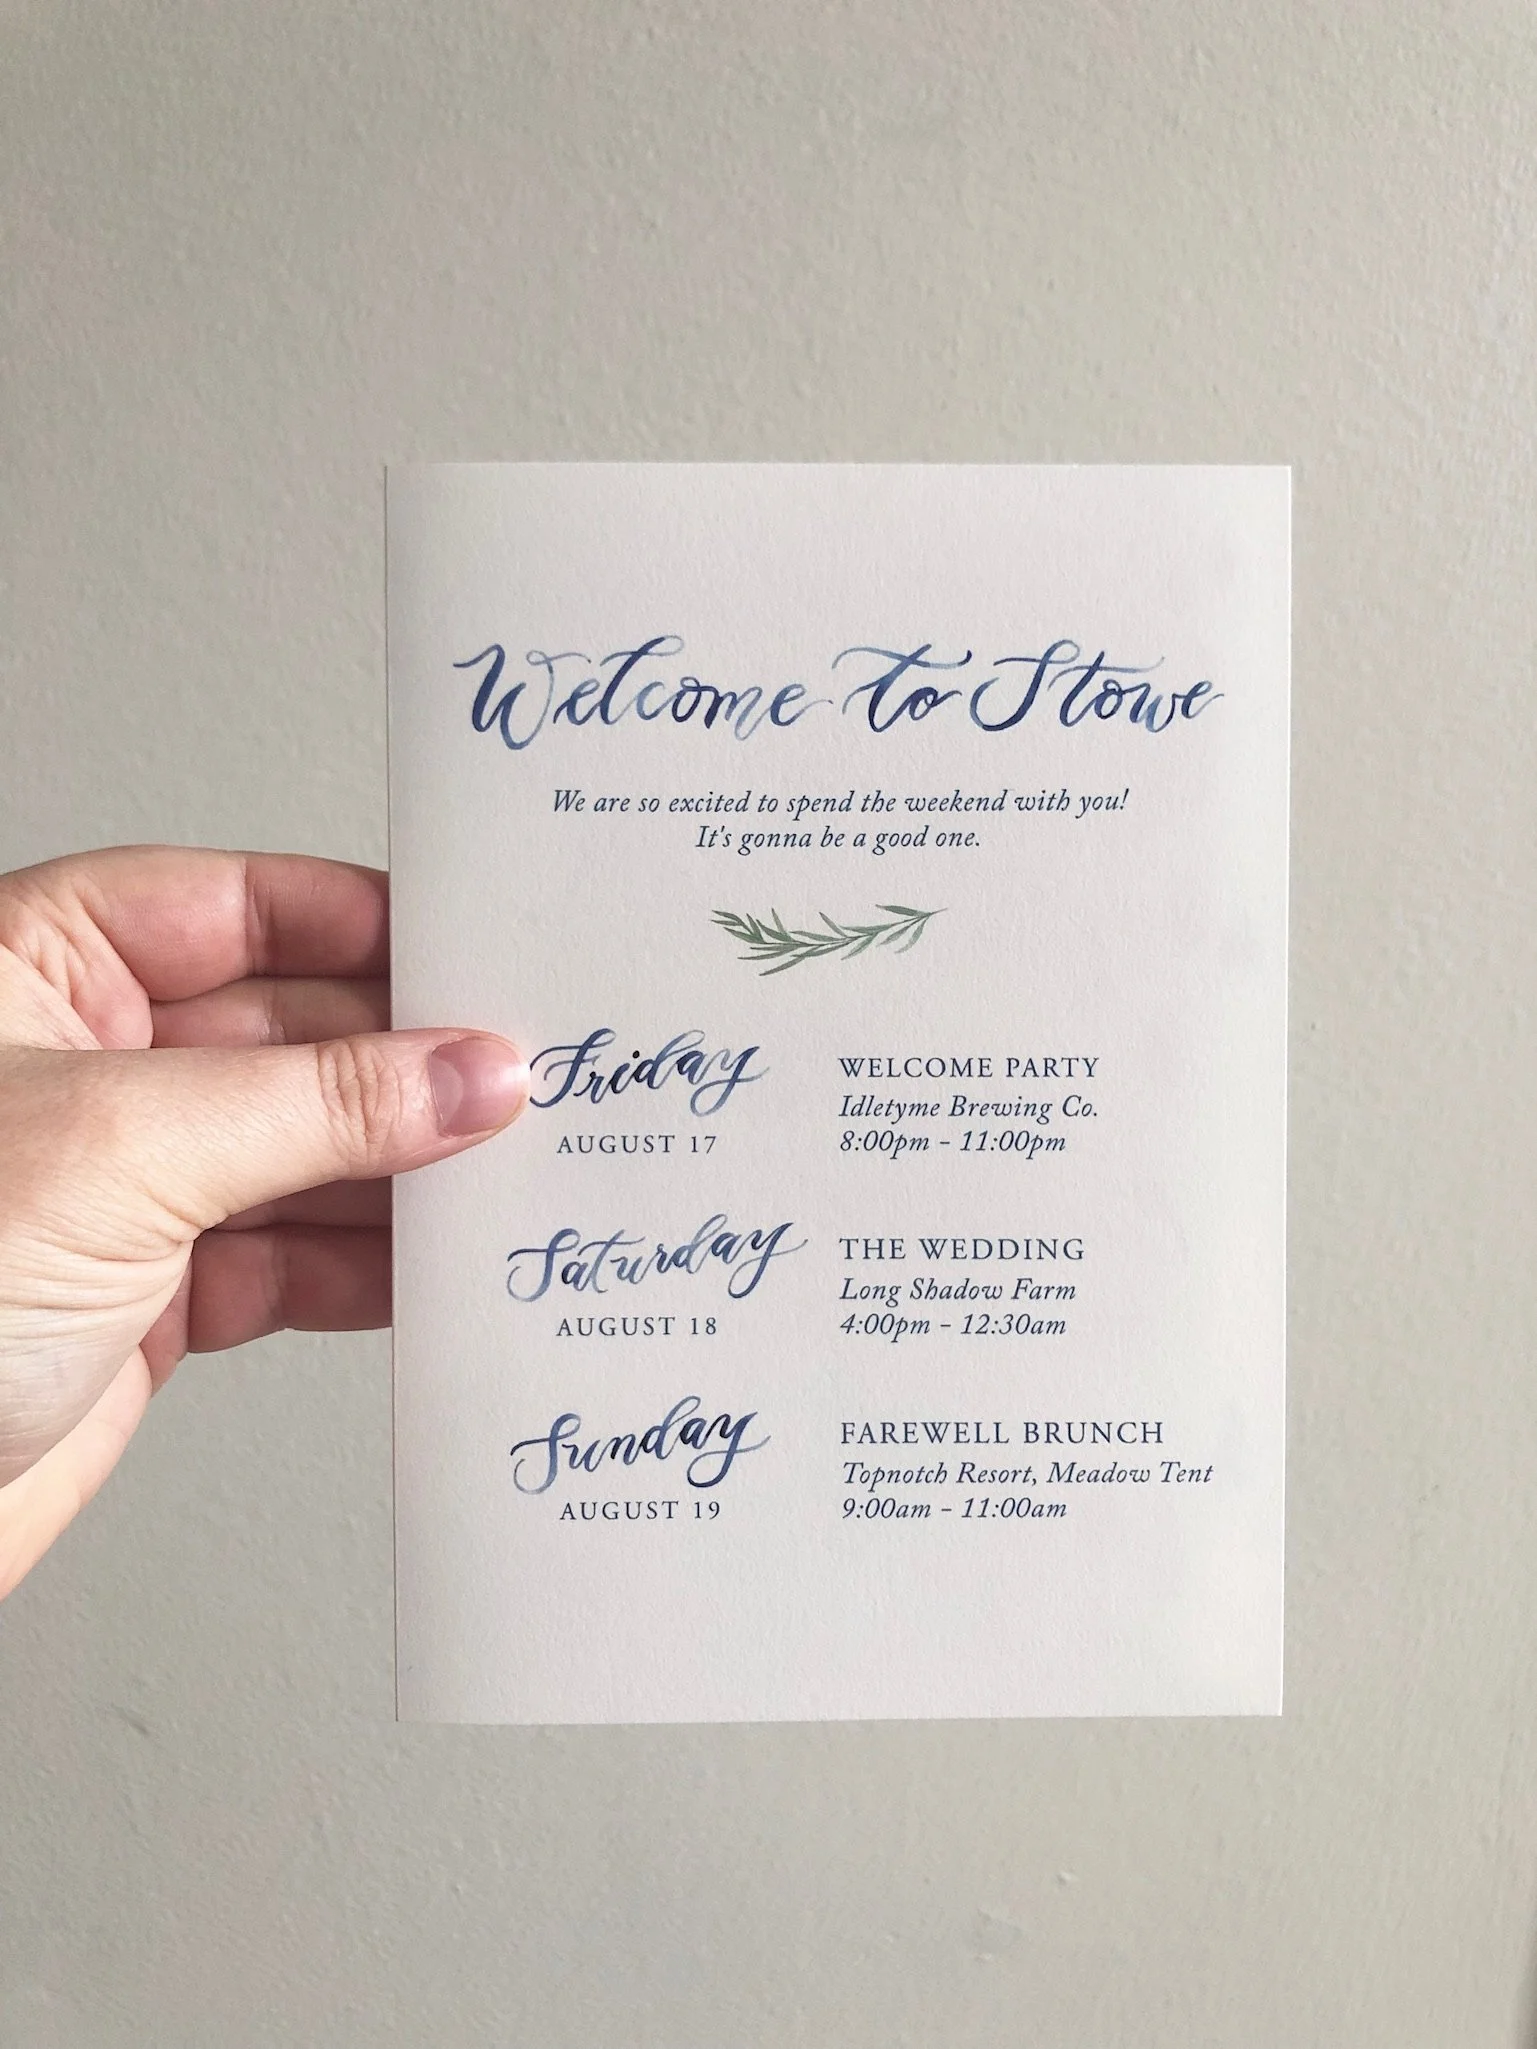 Welcome to Stowe
We are so excited to spend the weekend with you!
It's gonna be a good one.
Friday
AUGUST 17
WELCOME PARTY
Idletyme Brewing Co.
8:00pm – 11:00pm
Saturday
AUGUST 18
THE WEDDING
Long Shadow Farm
4:00pm – 12:30am
Sunday
AUGUST 19
FAREWELL BRUNCH
Topnotch Resort, Meadow Tent
9:00am – 11:00am